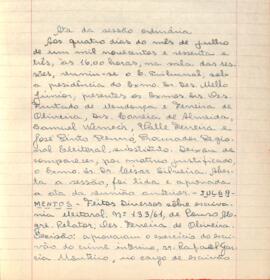 Ata da sessão ordinária
Aos quatro dias do mês de julho
de um mil novecentos e sessenta e
três, às 16,00 horas, na sala das ses-
sões, reuniu-se o E. Tribunal, sob
a presidência do Exmo. Sr. Des. Mello
Júnior, presentes os Exmos. Srs. Des.
Furtado de Mendonça e Ferreira de
Oliveira, Drs. Correia de Almeida,
Samuel Werneck, Valle Ferreira e
José Pinto Renno, Procurador Regio-
nal Eleitoral, substituto. Deixou de
comparecer, por motivo justificado,
o Exmo. Sr. Dr. Cesar Silveira. Aber-
ta a sessão, foi lida e aprovada
a ata da reunião anterior. - JULGA-
MENTOS - Feitos Diversos sôbre escriva-
nia eleitoral. Nº 133/61, de Pouso Ale-
gre. Relator, Des. Ferreira de Oliveira.
Decisão: aprovaram o exercício do escri-
vão do crime interino, sr. Rafael Gar-
cia, no cargo de escrivão